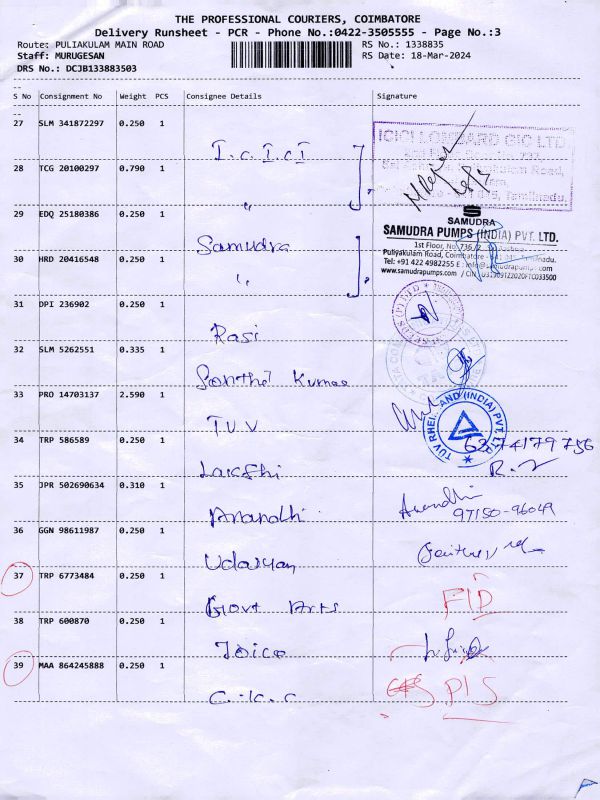 THE PROFESSIONAL COURIERS, COIMBATORE
Delivery Runsheet - PCR - Phone No.:0422-3505555 - Page No.:3
Route: PULIAKULAM MAIN ROAD RS No.: 1338835
Staff: MURUGESAN RS Date: 18-Mar-2024
DRS No.: DCJB133883503
S No Consignment No Weight PCS Consignee Details Signature
27 SLM 341872297 0.250 1
I.C.I.C.I
ICICI LOMBARD GIC LTD
28 TCG 20100297 0.790 1
"
29 EDQ 25180386 0.250 1
Samudra
SAMUDRA
SAMUDRA PUMPS (INDIA) PVT. LTD.
1st Floor, No.736/2
Puliyakulam Road, Coimbatore
Tel: +91 422 4982255
www.samudrapumps.com
30 HRD 20416548 0.250 1
"
31 DPI 236902 0.250 1
Rasi
32 SLM 5262551 0.335 1
Senthil Kumar
33 PRO 14703137 2.590 1
TUV
TUV RHEINLAND (INDIA) PVT. LTD.
34 TRP 586589 0.250 1
Lakshi
6374179756
35 JPR 502690634 0.310 1
Anandhi
Anandhi
97150-96049
36 GGN 98611987 0.250 1
Udayan
37 TRP 6773484 0.250 1
Govt Arts
FID
38 TRP 600870 0.250 1
Joico
39 MAA 864245888 0.250 1
C.K.C
S.P.I.S